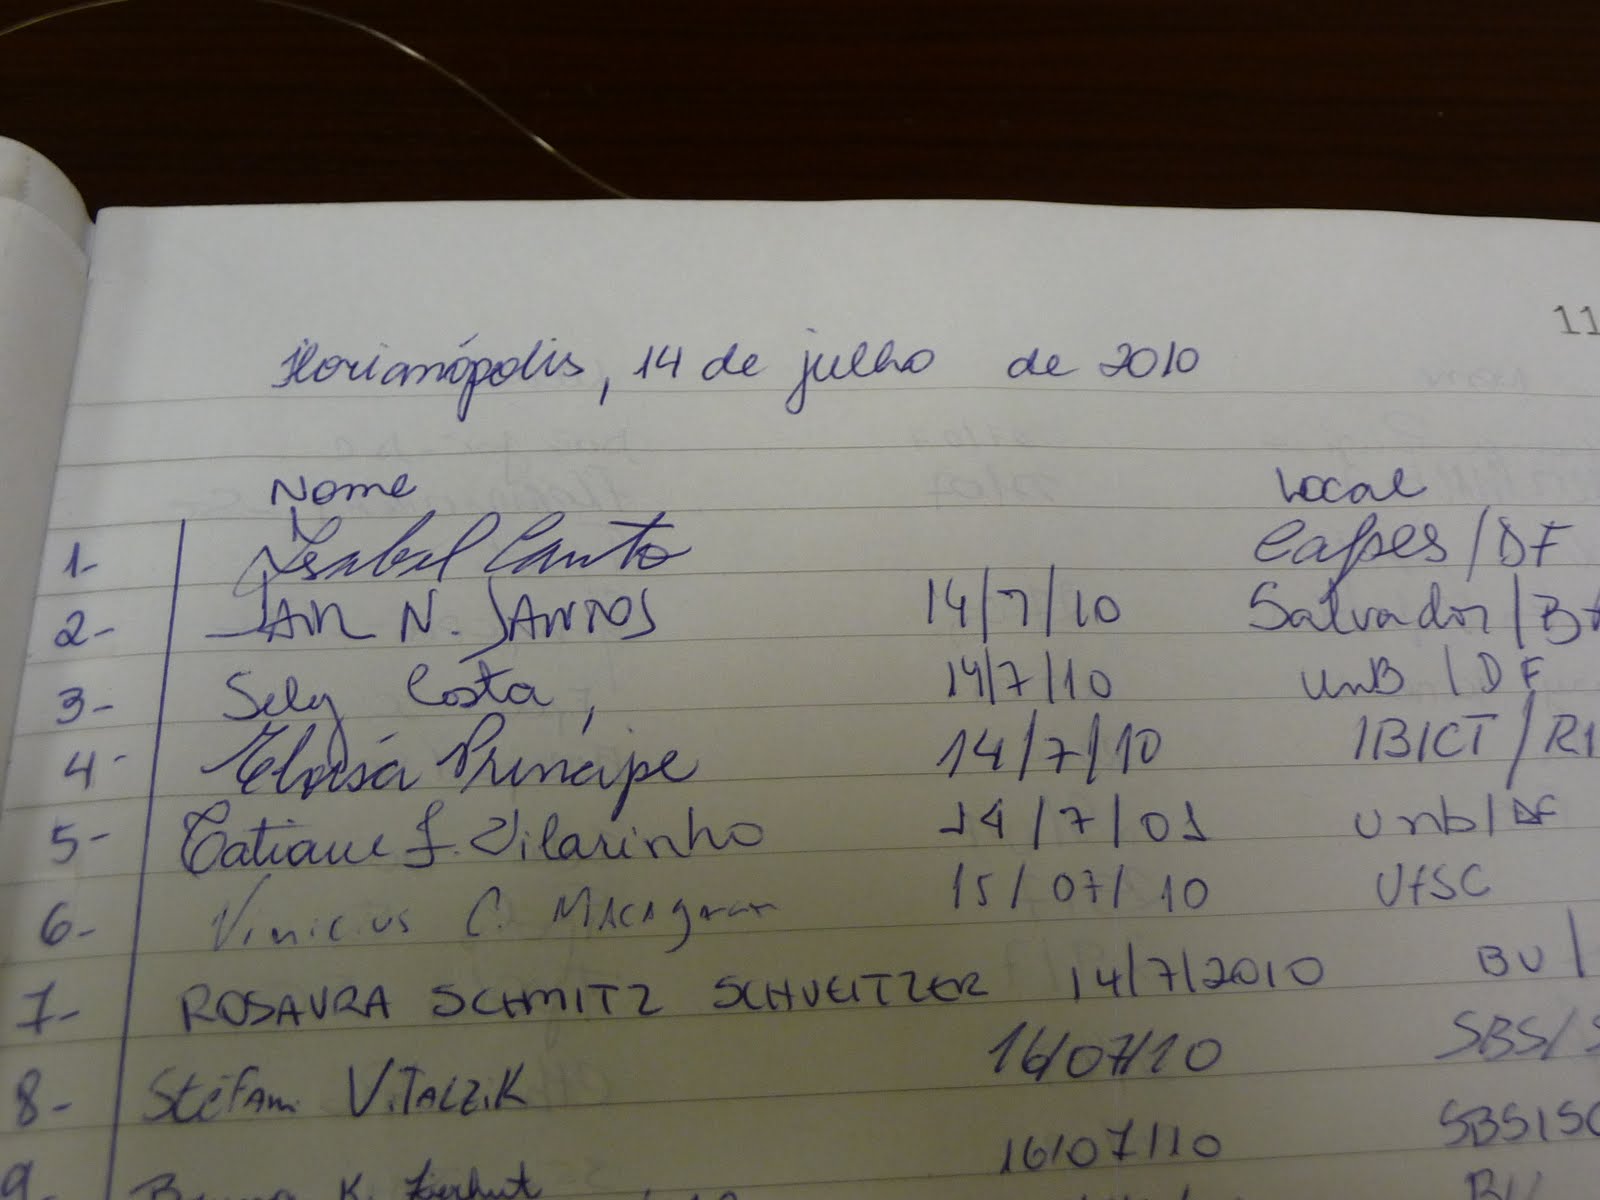 11
Florianópolis, 14 de julho de 2010
Nome Local
1- Isabel Canto Capes/DF
2- N. SANTOS 14/7/10 Salvador/BA
3- Sely Costa, 14/7/10 UnB/DF
4- Eloísa Príncipe 14/7/10 IBICT/RJ
5- Tatiane J. Vilarinho 14/7/01 Unb/DF
6- Vinicius C. 15/07/10 UfSC
7- ROSAURA SCHMITZ SCHVEITZER 14/7/2010 BU/
8- Stéfani VITALZiK 16/07/10 SBS/S
9- K. 16/07/10 SBS/SC
BU